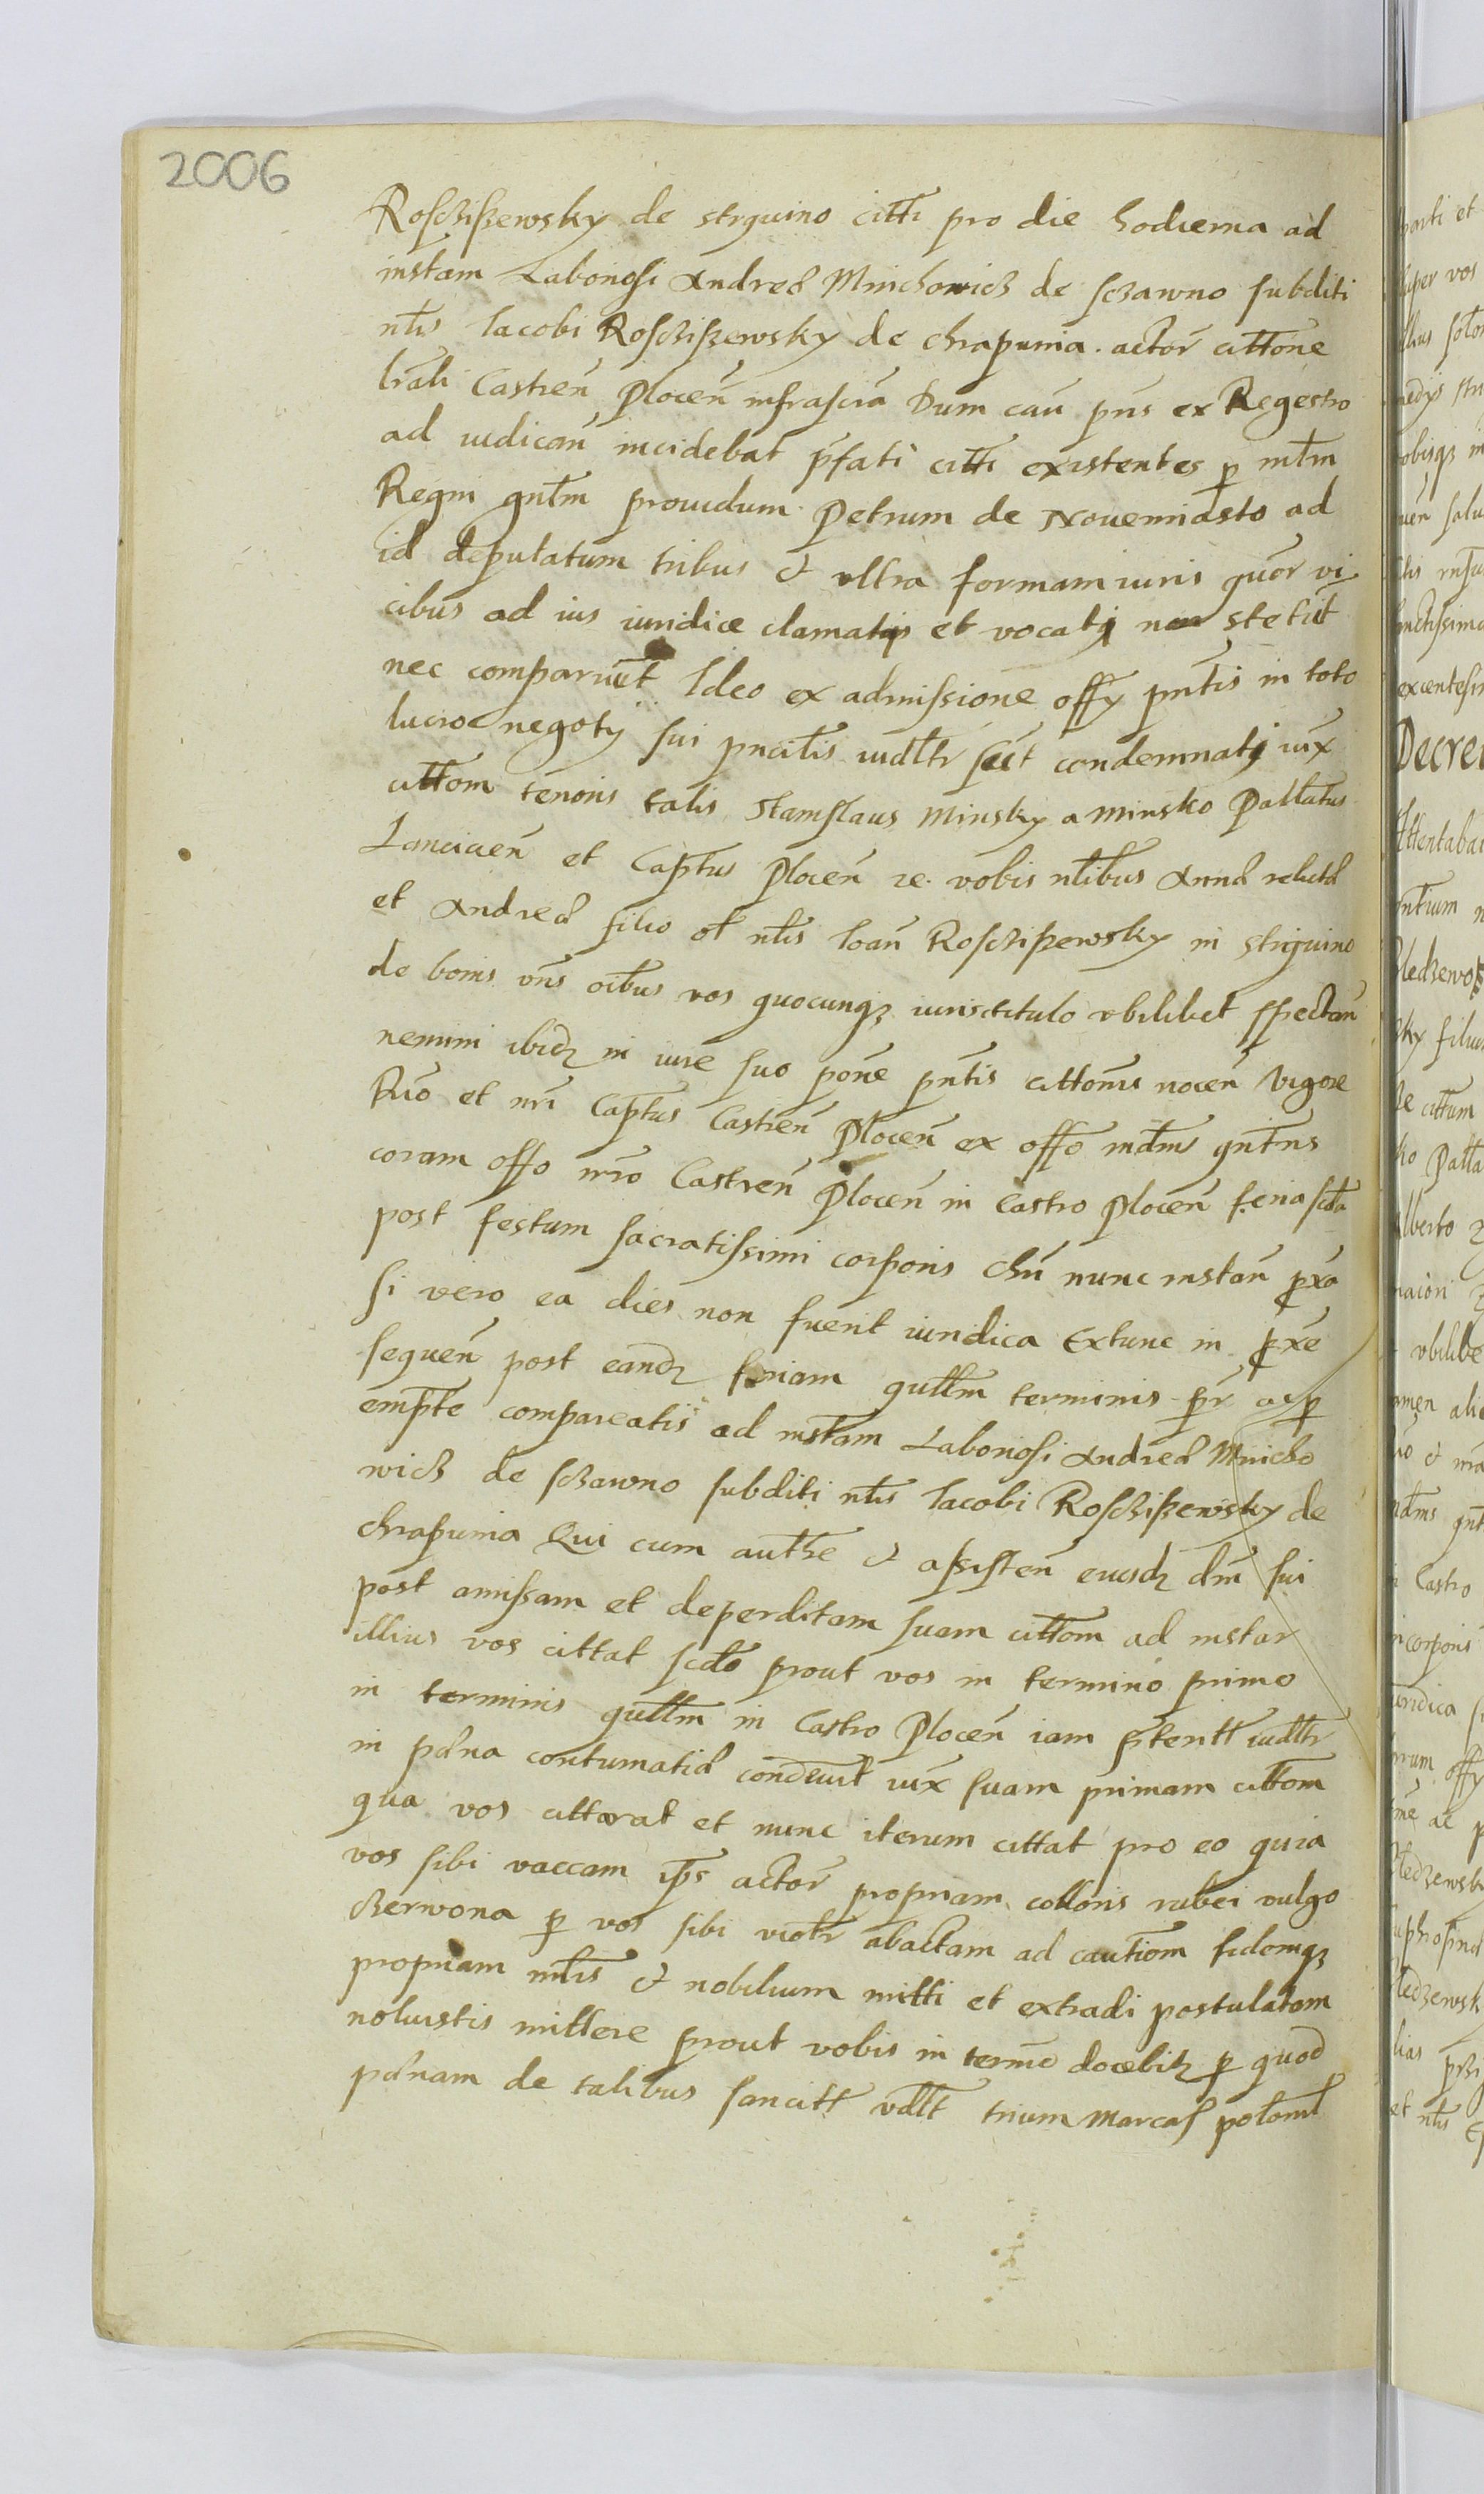 2006
Rosczißewsky de strguino citti pro die hodierna ad
instam Laboriosi Andreæ Mnichowicz de sczawno subditi
nłis Iacobi Rosczißewsky de chrapunia. actor̃ cittõne
lrãli Castreñ Ploceñ infrascrã Dum cañ pñs ex Regestro
ad iudicañ incidebat p̃fati citti existentes p mtm̃
Regni gntm̃ prouidum Petrum de Novemiasto ad
id deputatum tribus & vltra formam iuris quõr vi
cibus ad ius iuridice clamati et vocati non stetit
nec comparuit Ideo ex admissione offy pñtis in toto
lucroe negoty sui pncilis iudltr sũt condemnati iux̃
cittom tenoris talis Stanislaus Minsky a minsko Pallatus
Lanciceñ et Captus Ploceñ re. vobis nłibus Annæ relictæ
et Andreæ filio ol nłis Ioañ Rosczißewsky in strguino
de bonis vr̃is oĩbus vos quocunqʒ iurisctitulo vbilibet spectañ
nemini ibidʒ in iure suo pone pñtis cittonis noceñ vigore
Rio et nri Captus Castreñ Ploceñ ex offo mdm̃s gntñs
coram offo nr̃o Castreñ Ploceñ in castro Ploceñ feria scda
post festum sacratissimi corporis Chri nunc instañ p̃xa
si vero ea dies non fuerit iuridica Extunc in p̃xe
sequeñ post eandʒ feriam qultm̃ terminis pr̃ ac p
empte compareatis ad instam Laboriosi Andreæ Mnicho
wicz de sczawno subditi nłis Iacobi Rosczißewsky de
chrapunia Qui cum authe & assisteñ eiusdʒ dñi sui
post amissam et deperditam suam cittom ad instar
illius vos cittat scdo prout vos in termino primo
in terminis qultm̃ in Castro Ploceñ iam p̃teritt iudltr
in pæna contumatiæ condemt iux̃ suam primam cittom
qua vos cittarat et nunc iterum cittat pro eo quia
vos sibi vaccam ip̃s actor̃ propriam colloris rubei vulgo
czerwona p vos sibi violtr abactam ad cautiom fidemqʒ
propriam nłis & nobilium mitti et extradi postulatam
noluistis mittere prout vobis in termo docebitʒ p quod
pænam de talibus sancitt vdlt trium marcas polonicł